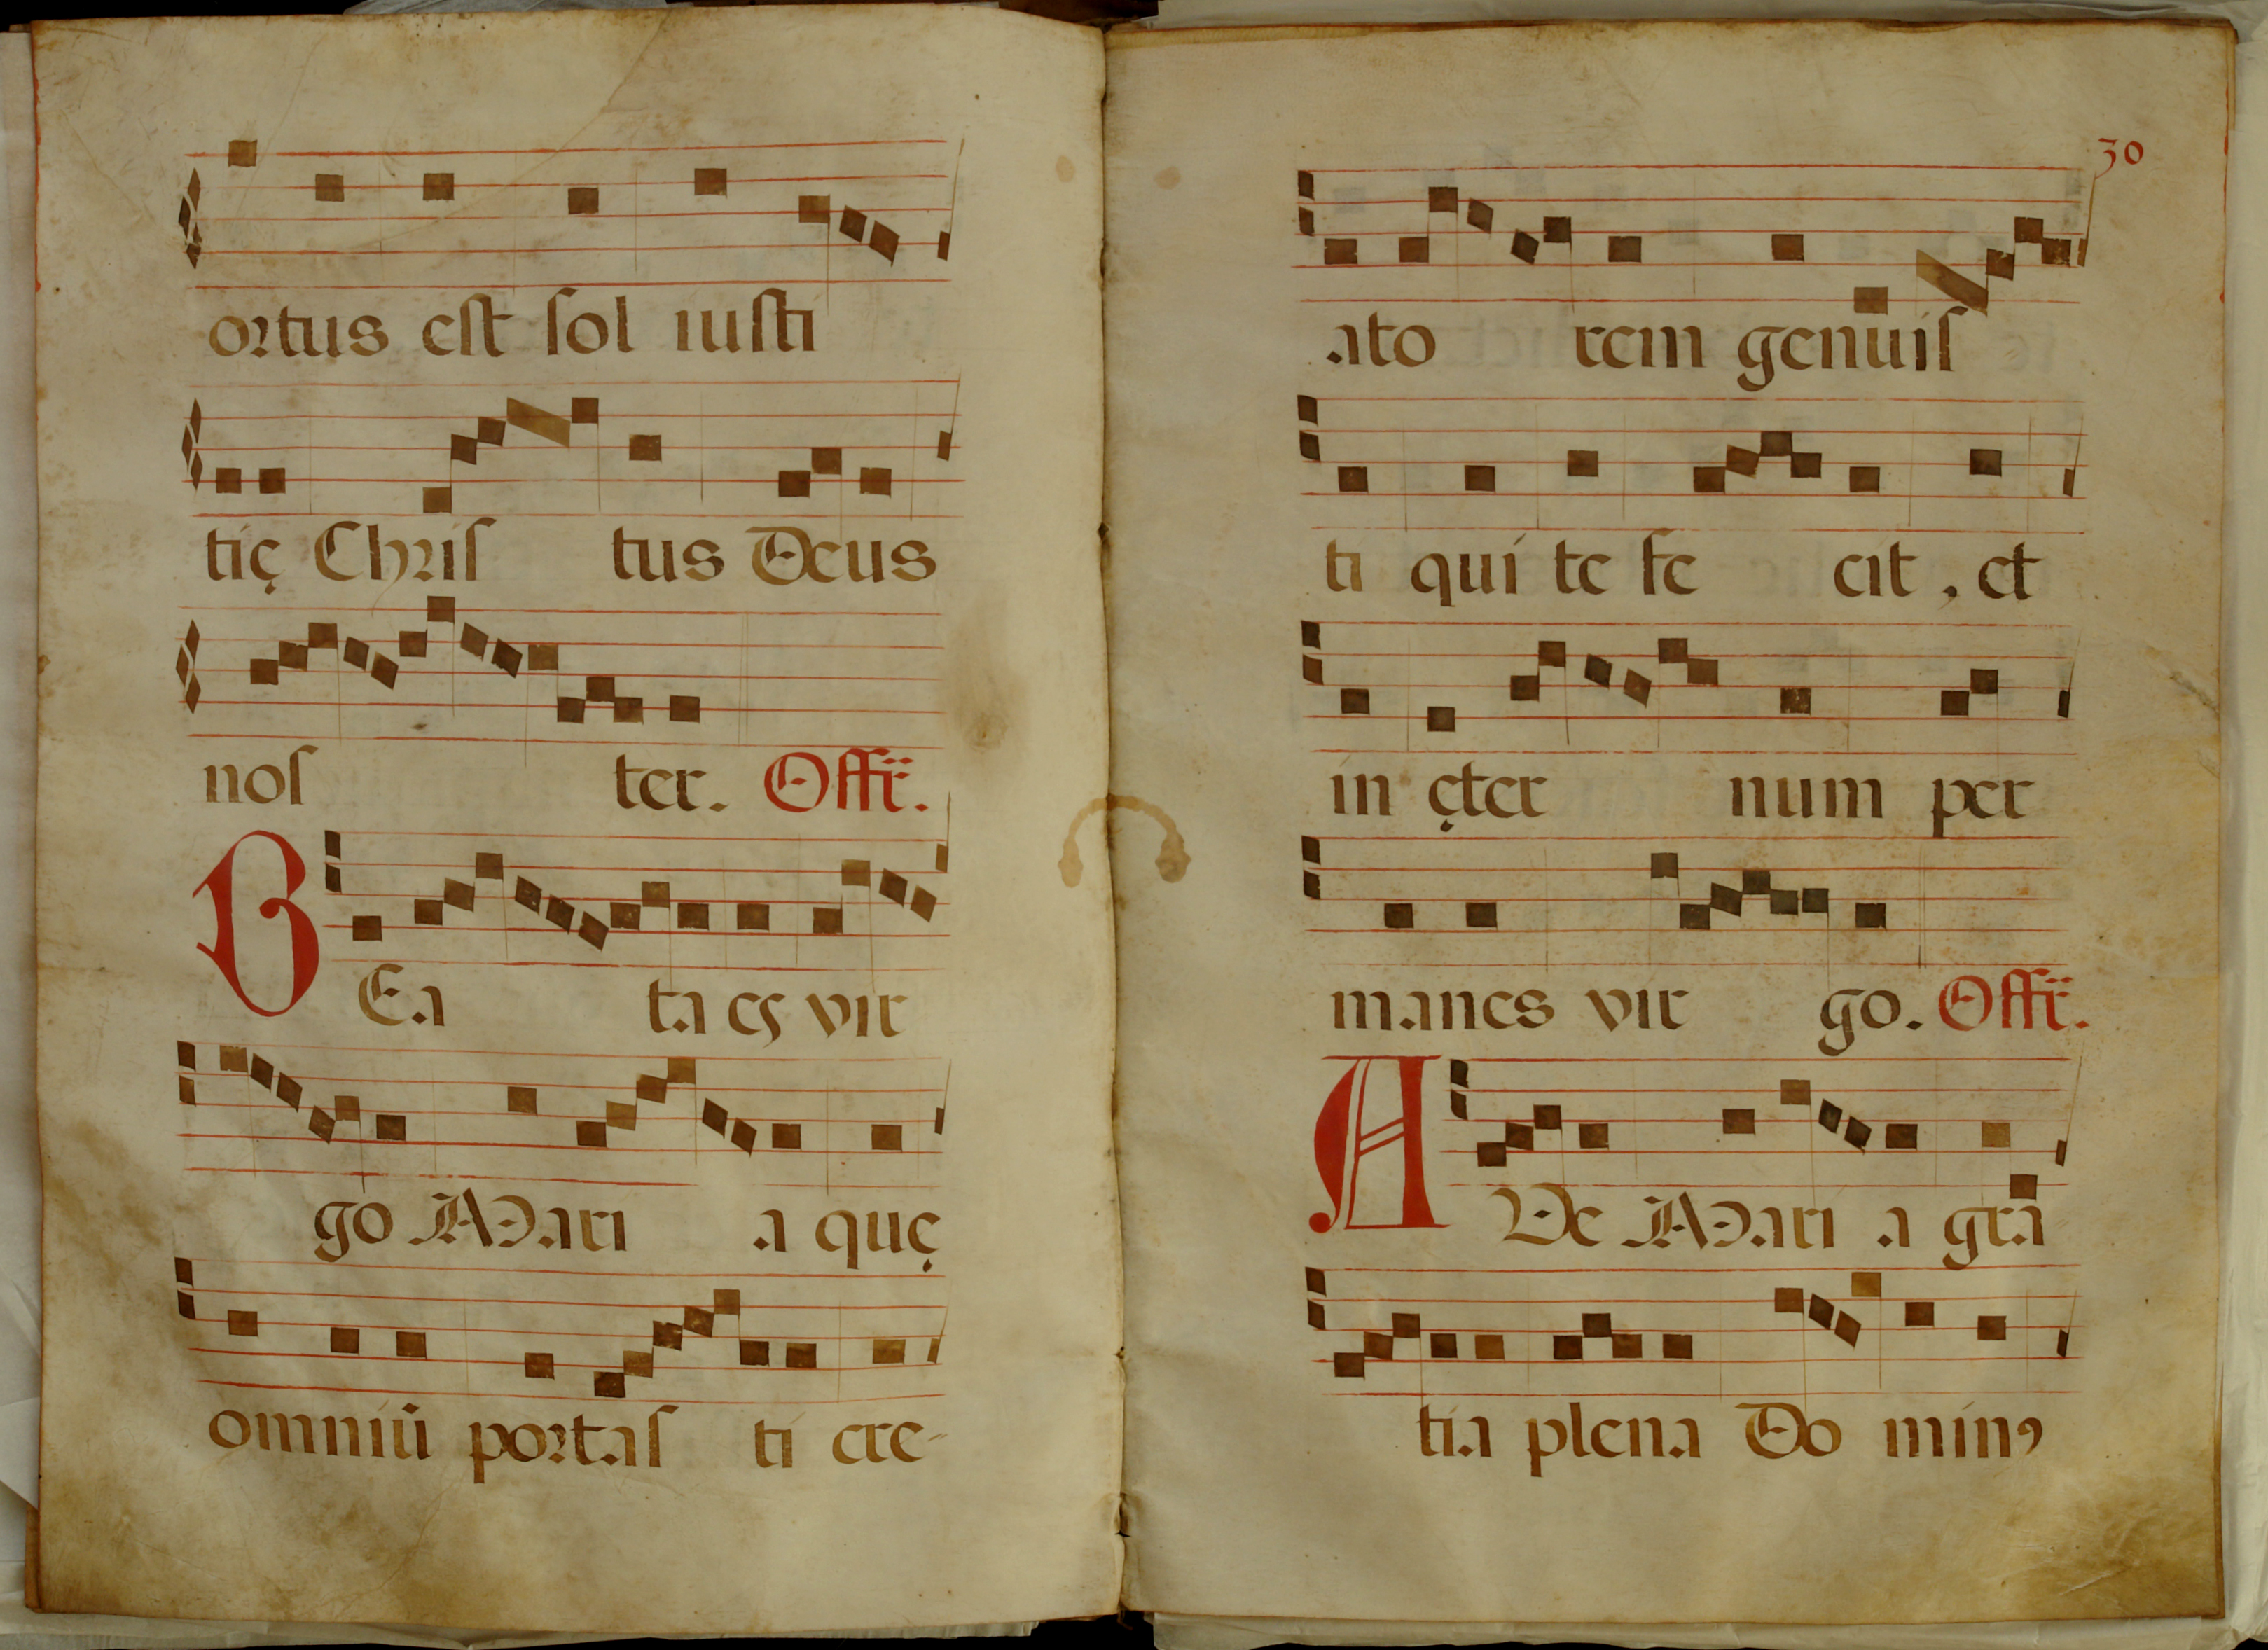 ortus est sol iusti
tię Chris tus Deus
nos ter. Offr̃.
BEa ta es vir
go Mari a quę
omniũ portas ti cre-
30
ato rem genuis
ti qui te fe cit, et
in ęter num per
manes vir go. Offr̃.
AVe Mari a gra
tia plena Do minꝰ